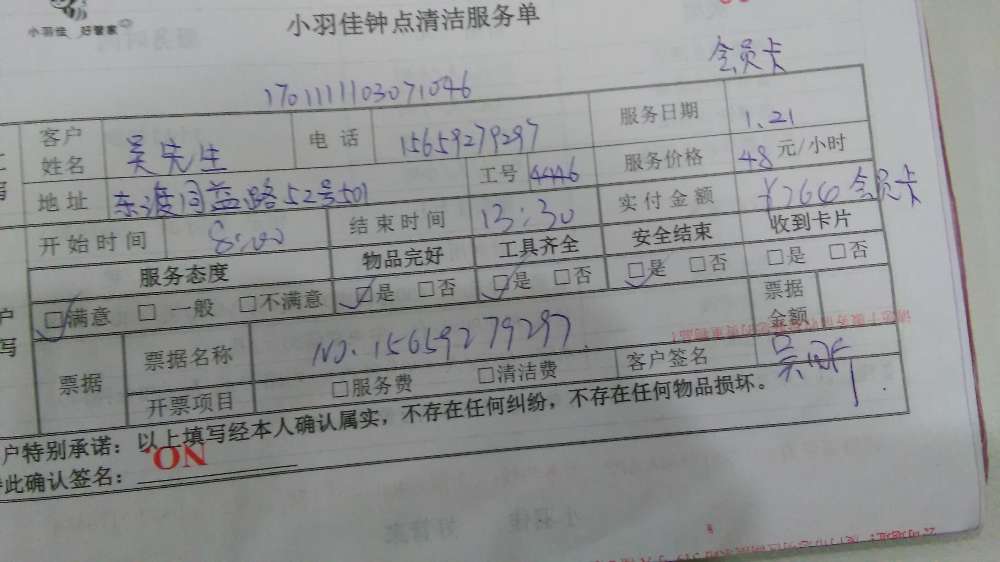 小羽佳 好管家
小羽佳钟点清洁服务单
会员卡
1701111103071046
客户姓名 吴先生 电话 15659279297 服务日期 1.21
地址 东渡同益路52号501 工号 4446 服务价格 48元/小时
开始时间 8:00 结束时间 13:30 实付金额 ¥264会员卡
服务态度 物品完好 工具齐全 安全结束 收到卡片
□满意 □一般 □不满意 □是 □否 □是 □否 □是 □否 □是 □否
票据 票据名称 NO.15659279297 票据金额
开票项目 □服务费 □清洁费 客户签名 吴
户特别承诺：以上填写经本人确认属实，不存在任何纠纷，不存在任何物品损坏。
此确认签名：
NO.